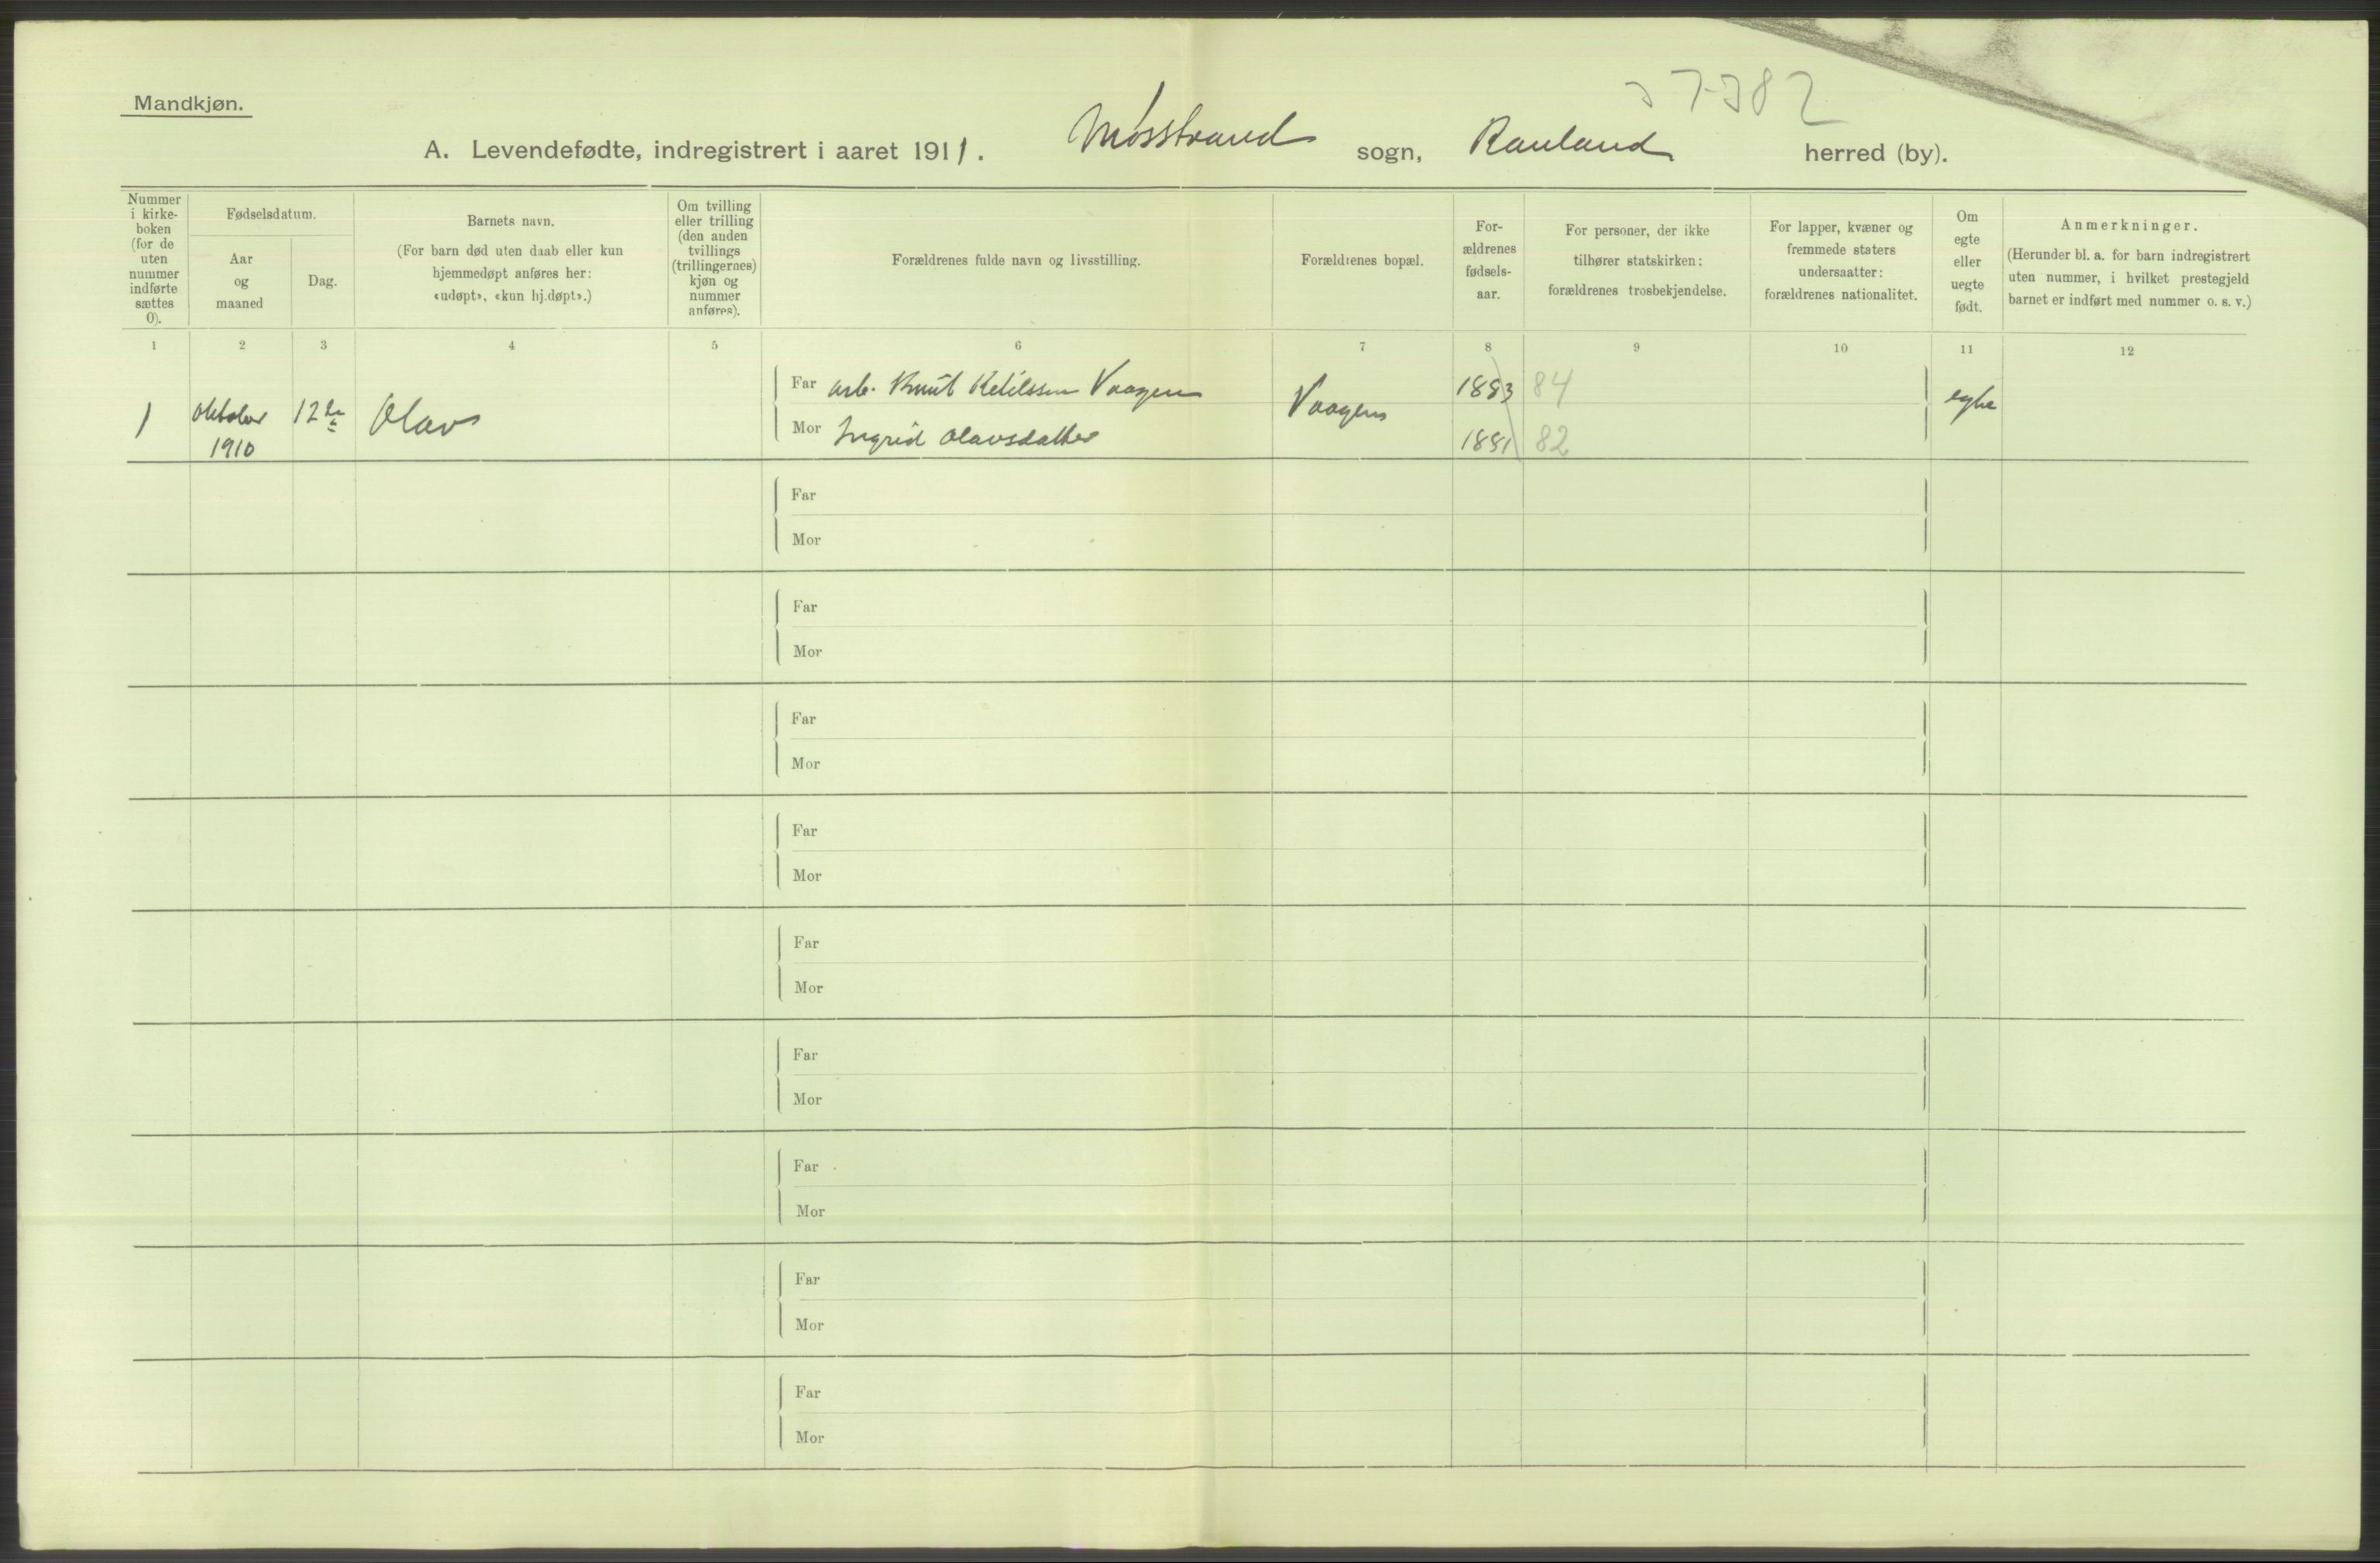 Mandkjøn.
A. Levendefødte, indregistrert i aaret 1911. Møsstrand sogn, Rauland herred (by).
Nummer
i kirke-
boken
(for de
uten
nummer
indførte
sættes
0).
Fødselsdatum.
Aar
og
maaned
Dag.
Barnets navn.
(For barn død uten daab eller kun
hjemmedøpt anføres her:
«udøpt», «kun hj.døpt».)
Om tvilling
eller trilling
(den anden
tvillings
(trillingernes)
kjøn og
nummer
anføres).
Forældrenes fulde navn og livsstilling.
Forældrenes bopæl.
For-
ældrenes
fødsels-
aar.
For personer, der ikke
tilhører statskirken:
forældrenes trosbekjendelse.
For lapper, kvæner og
fremmede staters
undersaatter:
forældrenes nationalitet.
Om
egte
eller
uegte
født.
Anmerkninger.
(Herunder bl. a. for barn indregistrert
uten nummer, i hvilket prestegjeld
barnet er indført med nummer o. s. v.)
1 2 3 4 5 6 7 8 9 10 11 12
1 Oktober 1910 12te Olav
Far arb. Knut Ketilssen Vaagen Vaagen 1883 84 egte
Mor Ingrid Olavsdatter 1881 82
Far
Mor
Far
Mor
Far
Mor
Far
Mor
Far
Mor
Far
Mor
Far
Mor
Far
Mor
Far
Mor